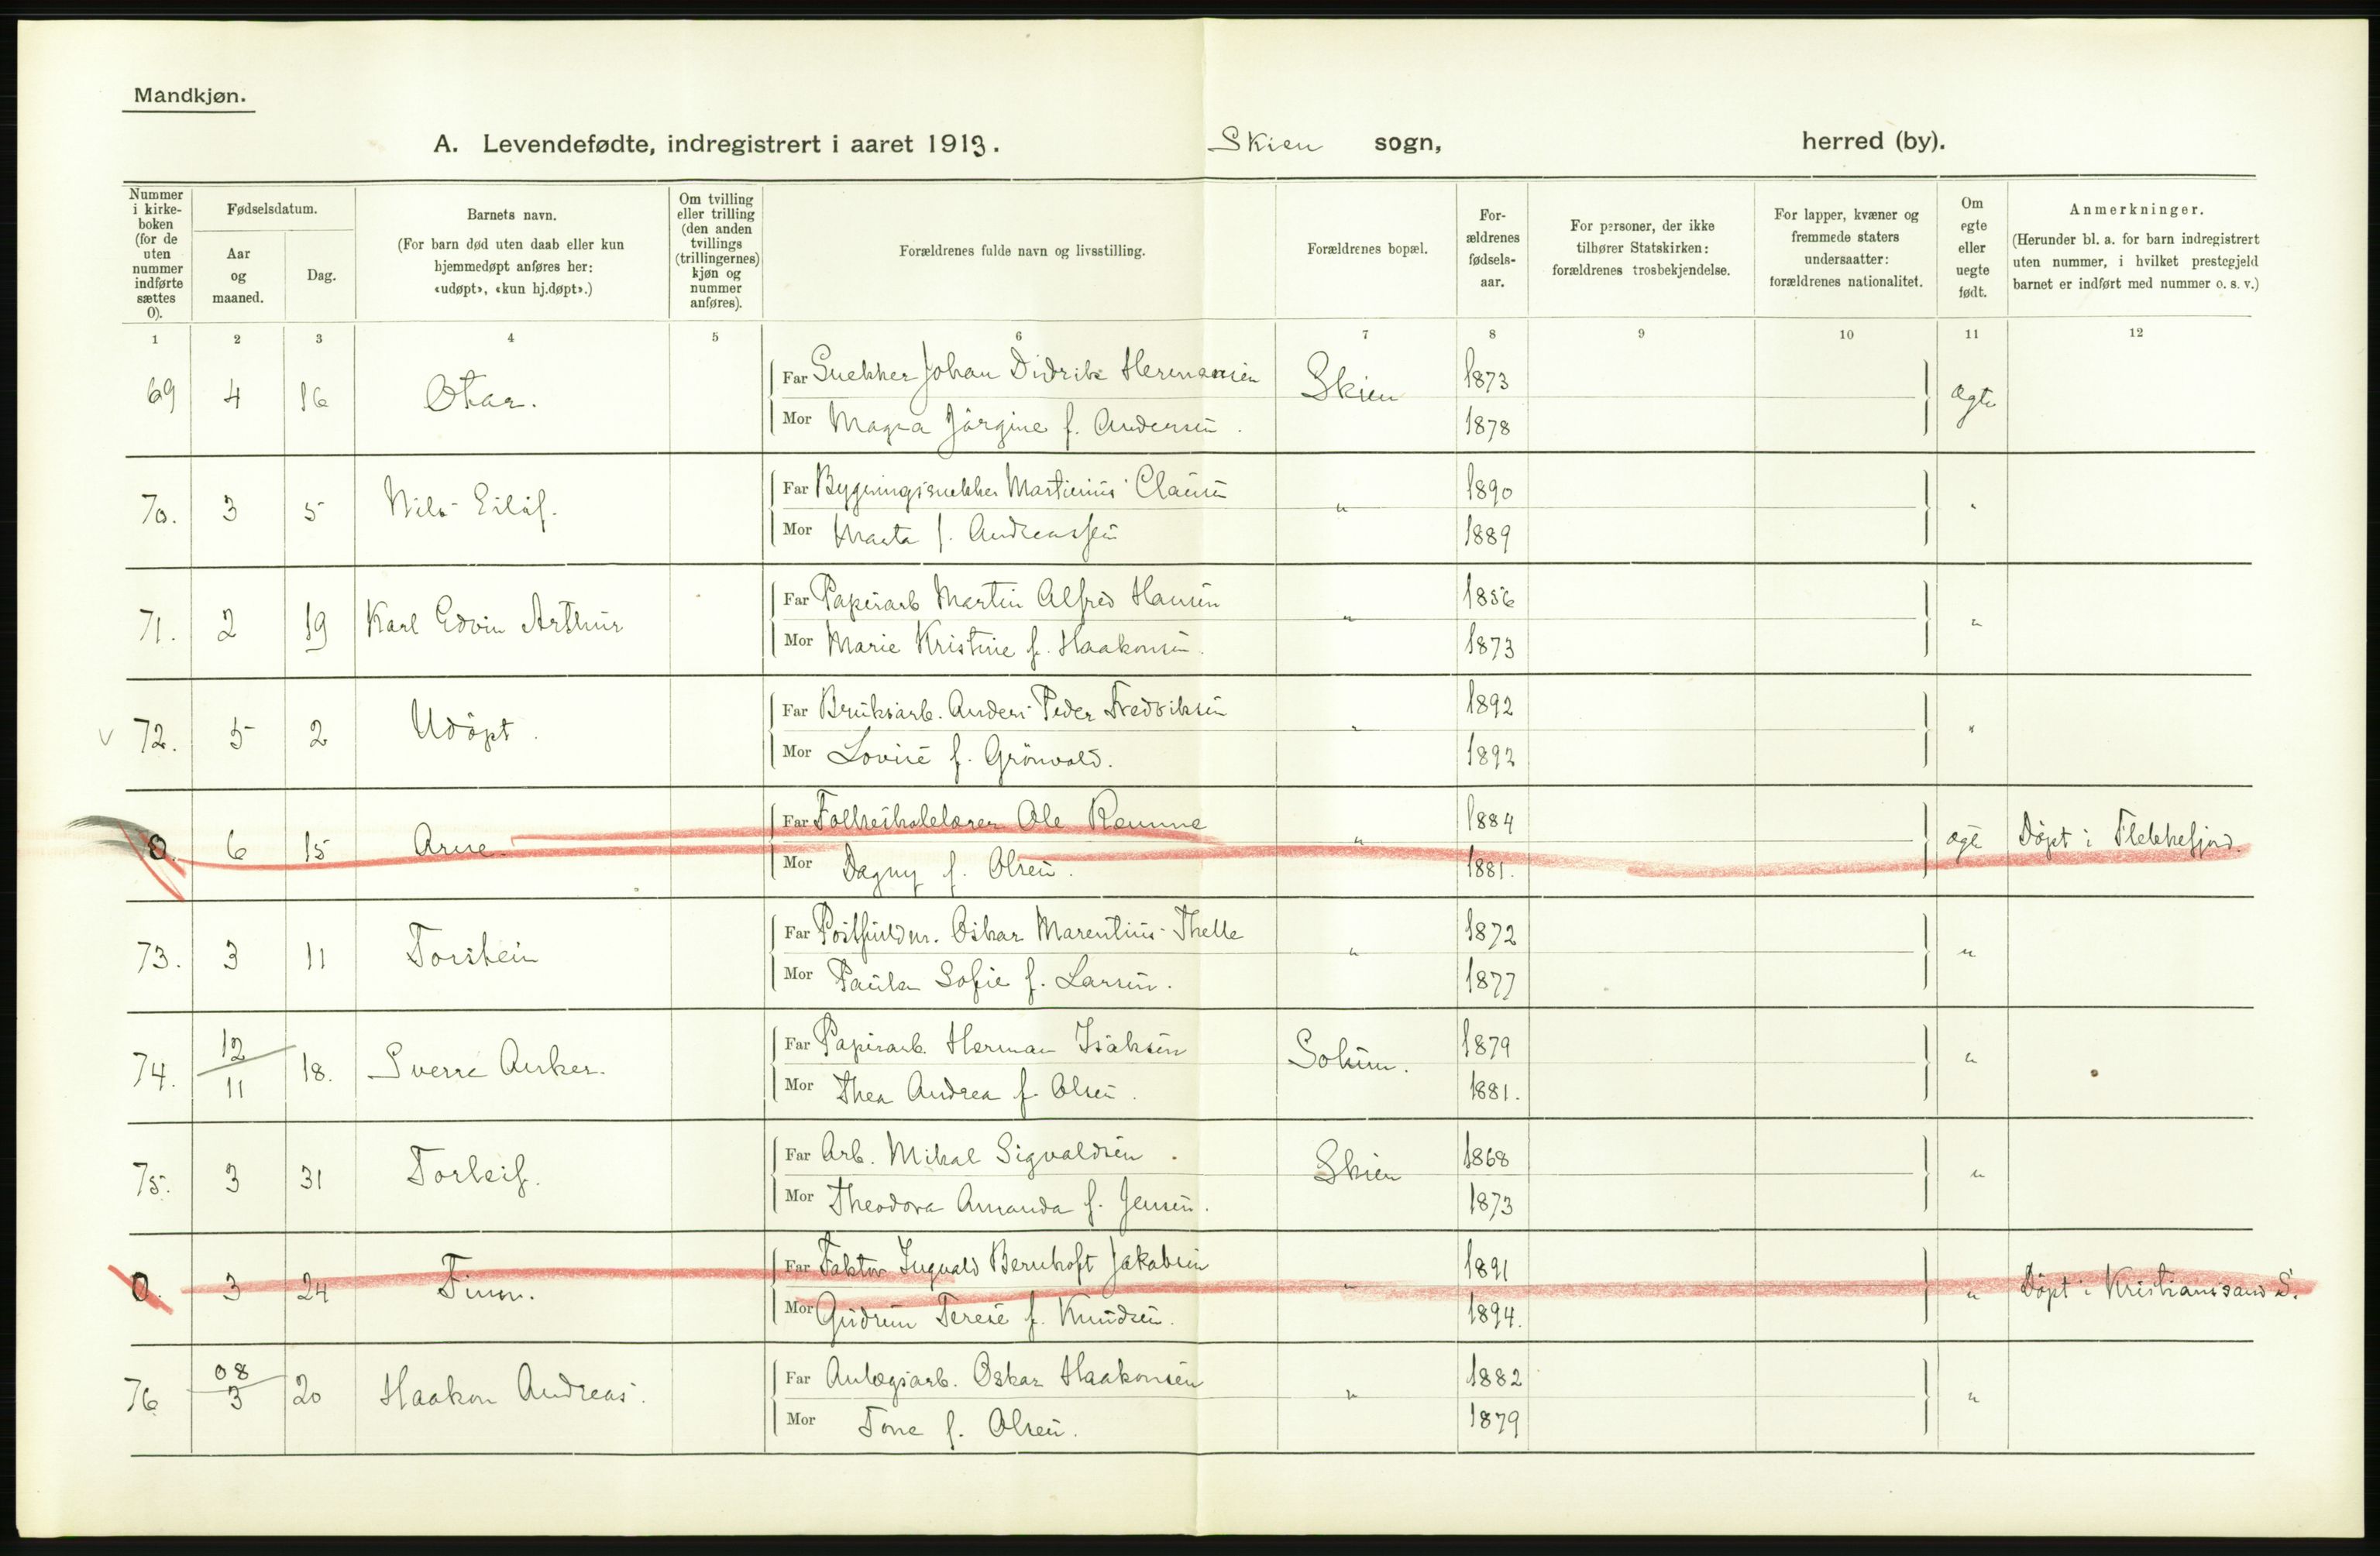 Mandkjøn.
A. Levendefødte, indregistrert i aaret 1913. Skien sogn, herred (by).
Nummer i kirke- boken (for de uten nummer indførte sættes 0).
Fødselsdatum.
Aar og maaned.
Dag.
Barnets navn.
(For barn død uten daab eller kun hjemmedøpt anføres her: «udøpt», «kun hj.døpt».)
Om tvilling eller trilling (den anden tvillings (trillingernes) kjøn og nummer anføres).
Forældrenes fulde navn og livsstilling.
Forældrenes bopæl.
For- ældrenes fødsels- aar.
For personer, der ikke tilhører Statskirken: forældrenes trosbekjendelse.
For lapper, kvæner og fremmede staters undersaatter: forældrenes nationalitet.
Om egte eller uegte født.
Anmerkninger.
(Herunder bl. a. for barn indregistrert uten nummer, i hvilket prestegjeld barnet er indført med nummer o. s. v.)
1 2 3 4 5 6 7 8 9 10 11 12
69 4 16 Otar. Far Snekker Johan Didrik Hermansen Skien 1873 ægte
Mor Magna Jørgine f. Andersen. 1878
70. 3 5 Nils Eilif. Far Bygningssnekker Martinius Clausen " 1890 "
Mor Marta f. Andreassen 1889
71. 2 19 Karl Edvin Arthur Far Papirarb Martin Alfred Hansen " 1856 "
Mor Marie Kristine f. Haakonsen. 1873
v 72. 5 2 Udøpt. Far Bruksarb. Anders Peder Fredriksen " 1892 "
Mor Lovise f. Grönvold. 1892
0. 6 15 Arne. Far Folkeskolelærer Ole Ramme " 1884 ægte Döpt i Flekkefjord.
Mor Dagny f. Olsen. 1881.
73. 3 11 Torstein Far Postfuldm. Oskar Marentius Thelle " 1872 "
Mor Paula Sofie f. Larsen. 1877
74. 12/11 18. Sverre Anker. Far Papirarb. Herman Isaksen Solum. 1879 "
Mor Thea Andrea f. Olsen. 1881.
75. 3 31 Torleif. Far Arb. Mikal Sigvaldsen. Skien 1868 "
Mor Theodora Amanda f. Jensen. 1873
0. 3 24 Finn. Far Faktor Ingvald Bernhoft Jakobsen " 1891 " Döpt i Kristianssand S.
Mor Gudrun Terese f. Knudsen. 1894.
76 08/3 20 Haakon Andreas. Far Anlægsarb. Oskar Haakonsen " 1882 "
Mor Tone f. Olsen. 1879